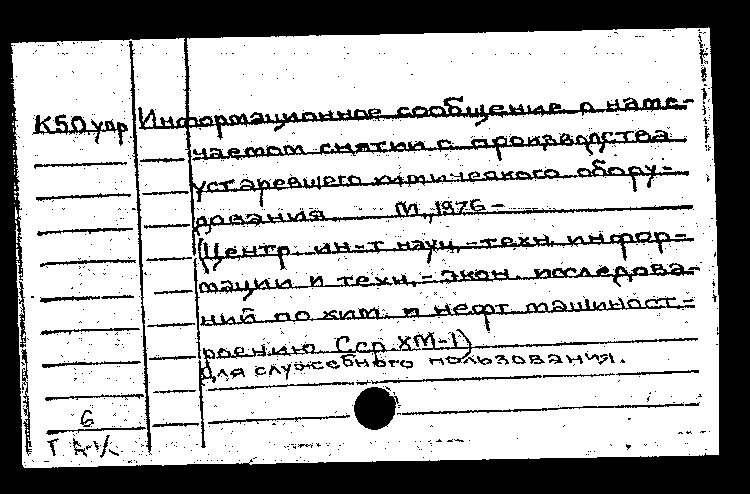 К50упр Информационное сообщение о наме-
чаемом снятии с производства
устаревшего химического обору-
дования. М., 1976 -
(Центр. ин-т науч.-техн. инфор-
мации и техн.-экон. исследова-
ний по хим. и нефт. машиност-
роению. Сер. ХМ-1)
Для служебного пользования.
6